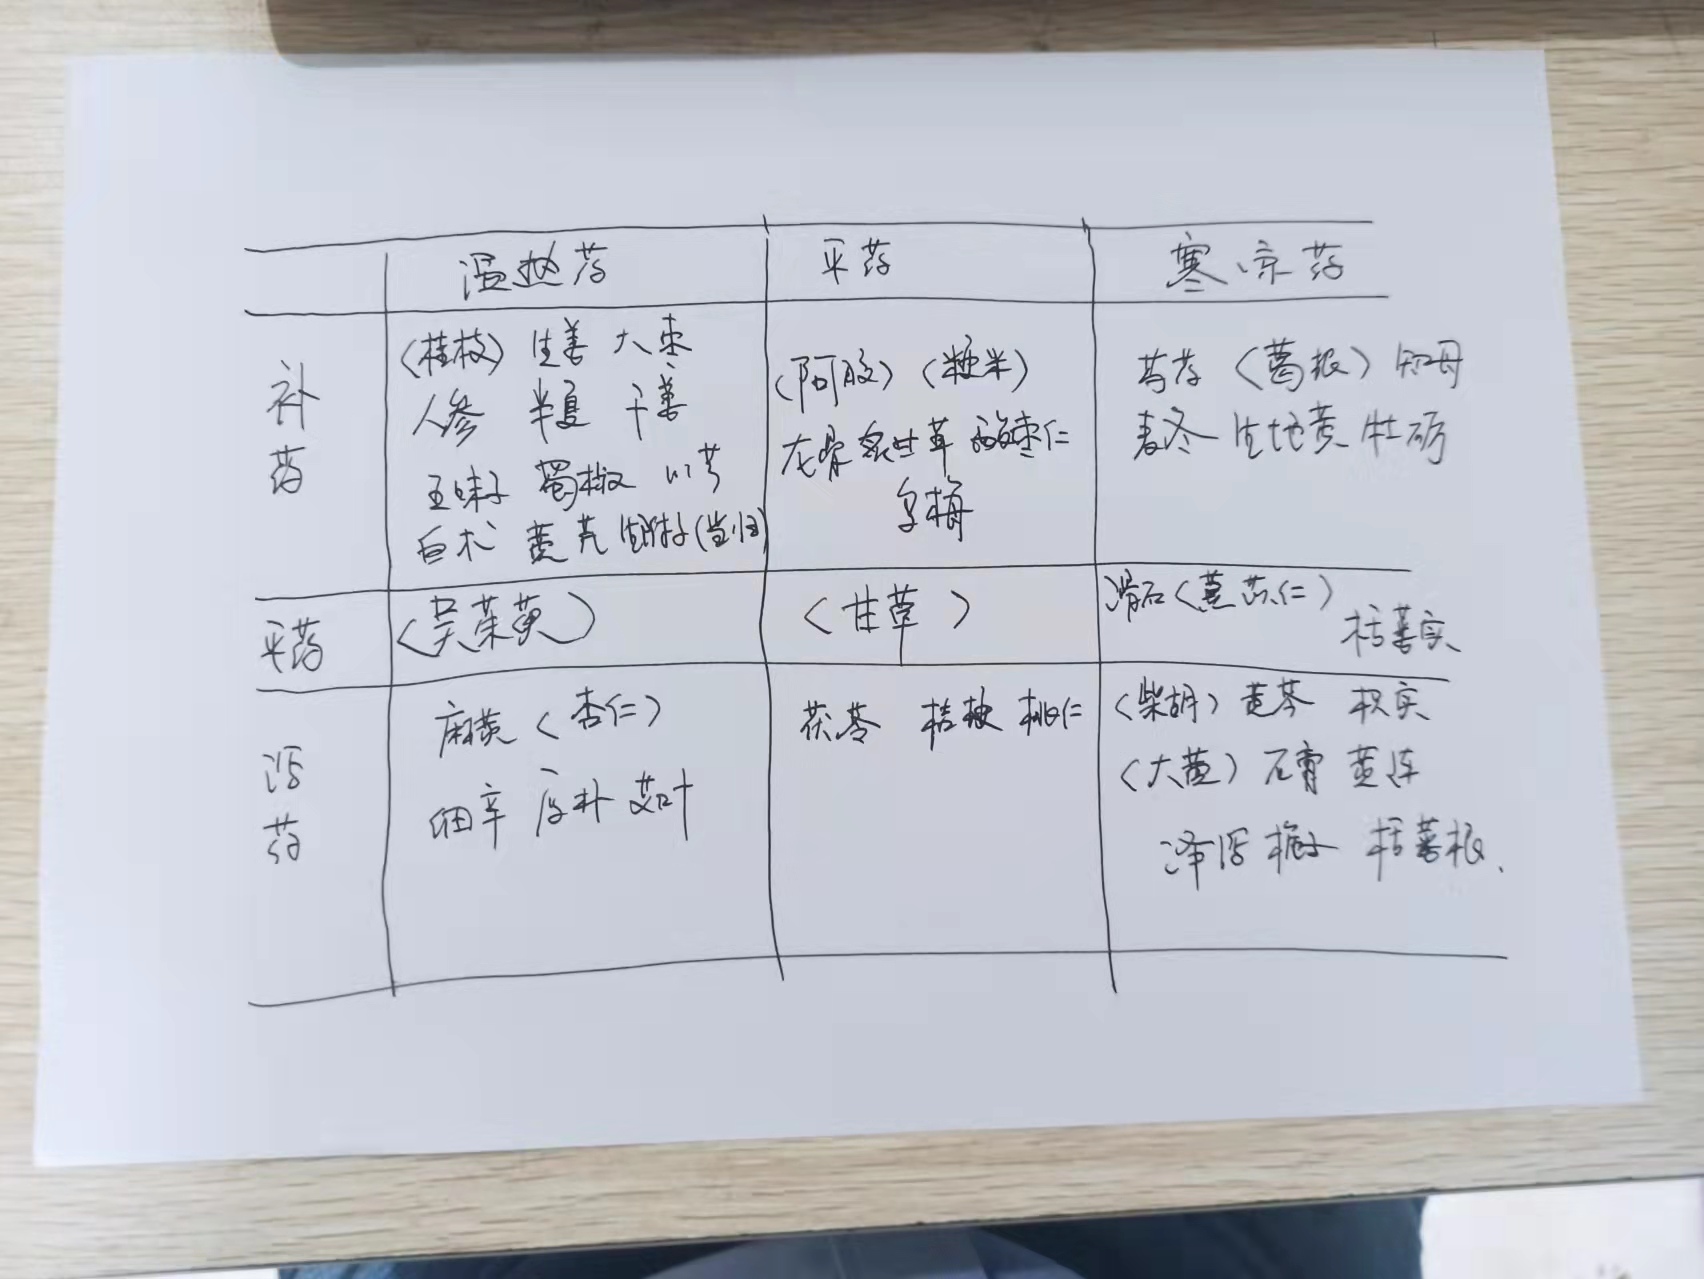 温热药 平药 寒凉药
补药
〈桂枝〉 生姜 大枣
人参 半夏 干姜
五味子 蜀椒 川芎
白术 黄芪 生附子(当归)
〈阿胶〉〈粳米〉
龙骨 炙甘草 酸枣仁
乌梅
芍药 〈葛根〉 知母
麦冬 生地黄 牡砺
平药
〈吴茱萸〉
〈甘草〉
滑石〈薏苡仁〉
栝蒌实
泻药
麻黄〈杏仁〉
细辛 厚朴 艾叶
茯苓 桔梗 桃仁
〈柴胡〉 黄芩 枳实
〈大黄〉 石膏 黄连
泽泻 栀子 栝蒌根.